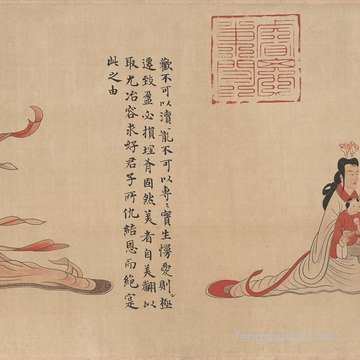 歡不可以瀆寵不可以專〻實生慢愛則極
遷致盈必損理有固然美者自美翩以
取尤冶容求好君子所仇結恩而絕寔
此之由
睿思
東閣